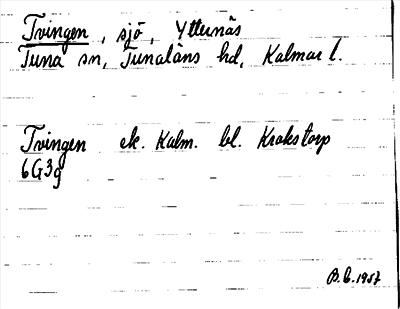 Tvingen, sjö, Ytternäs
Tuna sn, Tunaläns hd, Kalmar l.
Tvingen ek. Kalm. bl. Krokstorp
6G3g
B.G. 1957